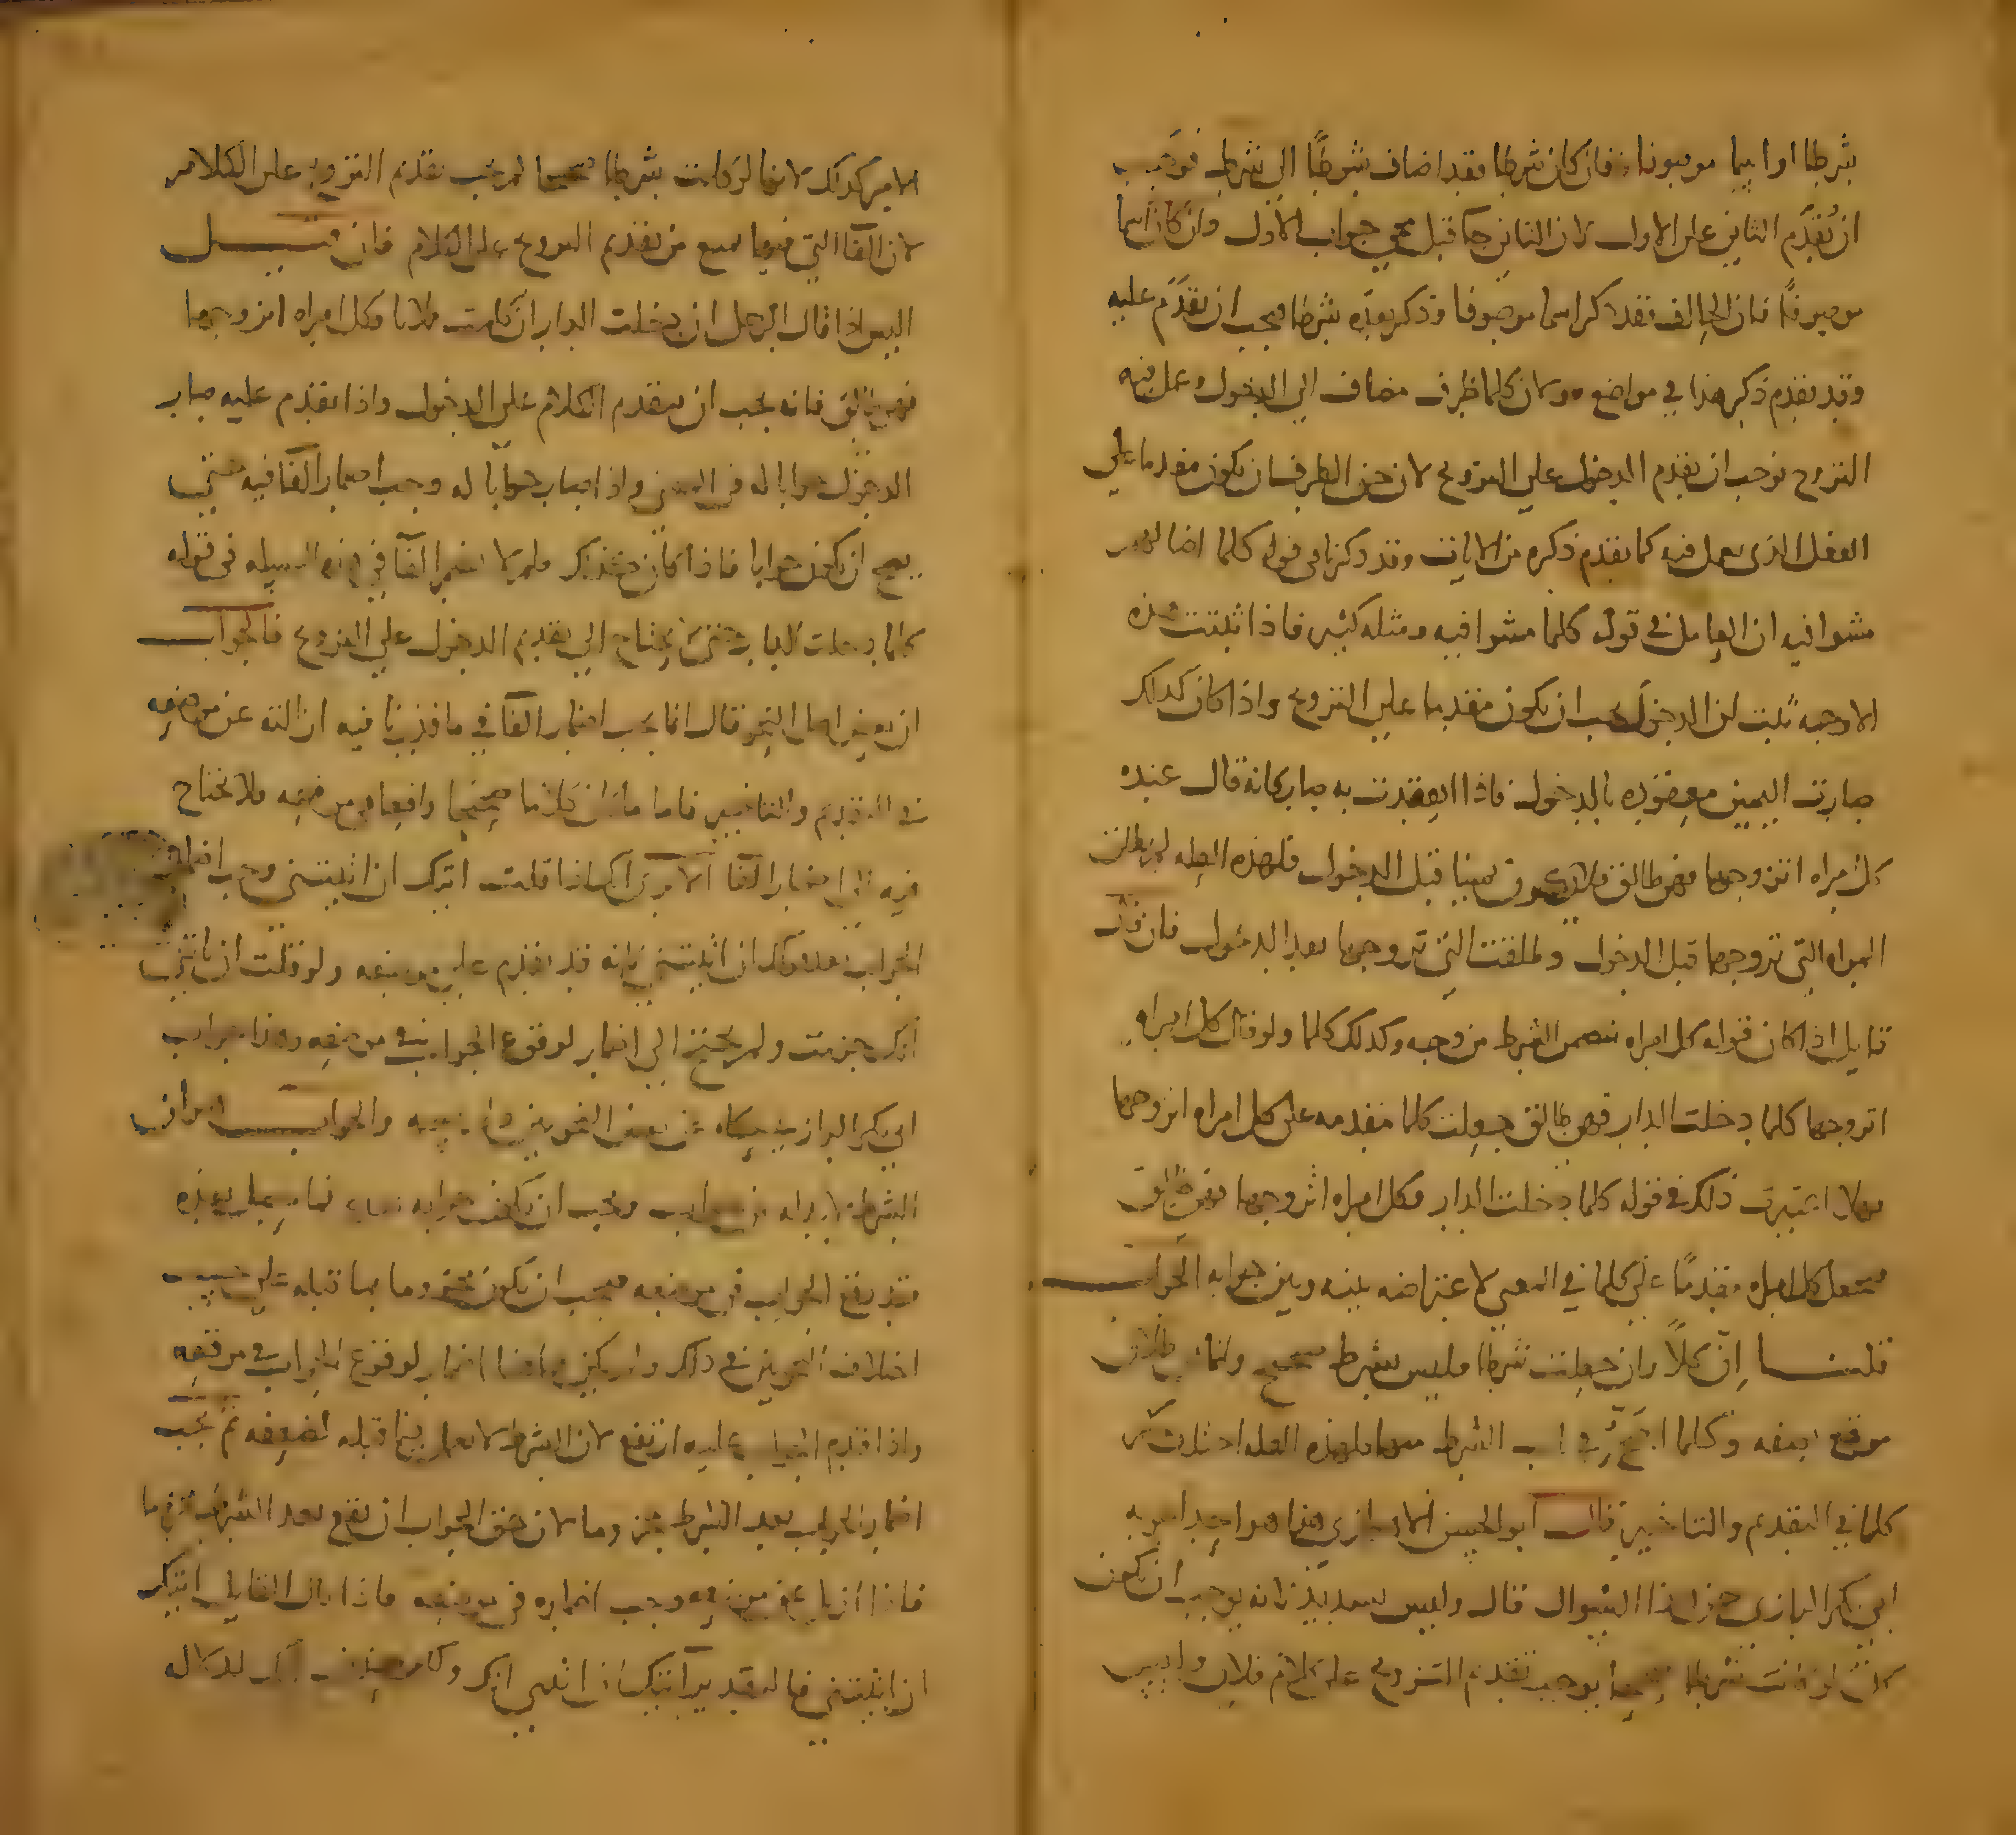 شرطا او اسما موصوفا فان كان شرطا فقد اضاف شرطا الى شرط فوجب
ان يُقدَّم الثاني على الاول لان الثاني حا قبل مجي جواب الاول وان كان اسما
موصوفًا فان الحالف فقد ذكر اسما موصوفا وذكر بعده شرطا فيجب ان يقدم عليه
وقد تقدم ذكر هذا في مواضع ولان كلما ظرف مضاف الى الدخول وعمل فيه
التزوج فوجب ان يقدم الدخول على التزوج لان حق الظرف ان يكون مقدما على
الفعل الذي يعمل فيه كما تقدم ذكره من الايات وقد ذكرنا في قوله كلما اضا لهم
مشوا فيه ان العامل في قوله كلما مشوا فيه ومثله كثير فاذا ثبتت هذه
الاوجه ثبت ان الدخول يجب ان يكون مقدما على التزوج واذا كان كذلك
صارت اليمين معقوده بالدخول فاذا انعقدت به صار كانه قال عنده
كل امراه اتزوجها فهي طالق فلا يكون يمينا قبل الدخول فلهذه العله لم تطلق
المراه التي تزوجها قبل الدخول وطلقت التي تزوجها بعد الدخول فان قال
قايل اذا كان قوله كل امراه تضمن الشرط من وجه وكذلك كلما ولو قال كل امراه
اتزوجها كلما دخلت الدار فهي طالق جعلت كلما مقدمه على كل امراه اتزوجها
فهلا اعتبرت ذلك في قوله كلما دخلت الدار فكل امراه اتزوجها فهي طالق
فتجعل كل امراه مقدمًا على كلما في المعنى لاعتراضه بينه وبين جوابه الجواب
قلنا إن كلاً وان جعلت شرطا فليس بشرط صحيح وانما
موقع وكلما الشرط فلهذه العله اختلفت
كلما في التقديم والتاخير قال ابو الحسين هذا هو احد اجوبه
ابي بكر الرازي عن هذا السوال قال وليس بسديد لانه يوجب ان تكون
كل لو كانت شرطا يوجب تقديم التزوج على كلام فلان وليس
الامر كذلك لانها لو كانت شرطا صحيحا لم يجب تقديم التزويج على الكلام
لان الفا التي فيها تمنع من تقديم التزوج على الكلام فان قيل
اليس اذا قال الرجل ان دخلت الدار ان كلمت فلانا فكل امراه اتزوجها
فهي طالق فانه يجب ان يتقدم الكلام على الدخول واذا تقدم عليه صار
الدخول جوابا له في المعنى واذا صار جوابا له وجب اضمار الفا فيه حتى
يصح ان يكون جوابا فاذا كان كذلك فلم لا تضمر الفا في هذه المسيله في قوله
كلما دخلت الدار حتى يحتاج الى تقديم الدخول على التزوج فالجواب
ان بعض اهل النحو قال انما يجب اضمار الفا في ما قدرنا فيه ازالته عن موضعه
في التقديم والتاخير فاما ما كان كلاما صحيحا واقعا في موضعه فلا نحتاج
فيه الى اضمار الفا الا ترى انك اذا قلت اتيك ان اتيتني وجب اضمار
الجواب بعد قولك ان اتيتني لانه قد تقدم على موضعه ولو قلت ان تاتني
اتك جزمت ولم تحتج الى اضمار لوقوع الجواب في موضعه وهذا جواب
ابي بكر الرازي حكاه عن بعض النحويين والجواب ان
الشرط لا بد له من جواب ويجب ان يكون جوابه بعده
فقد يقع الجواب في موضعه فيجب ان يكون مجزوما بما قبله على حسب
اختلاف النحويين في ذلك ولم يكن هاهنا اضمار لوقوع الجواب في موقعه
واذا قدم الجواب عليه ارتفع لان الشرط لا يعمل فيما قبله لضعفه ثم يجب
اضمار الجواب بعد الشرط مجزوما لان حق الجواب ان يقع بعد الشرط
فاذا ازيل عن موضعه وجب اضماره في موضعه فاذا قال القايل اتيك
ان اتيتني فالتقدير اتيك ان اتيتني اتك